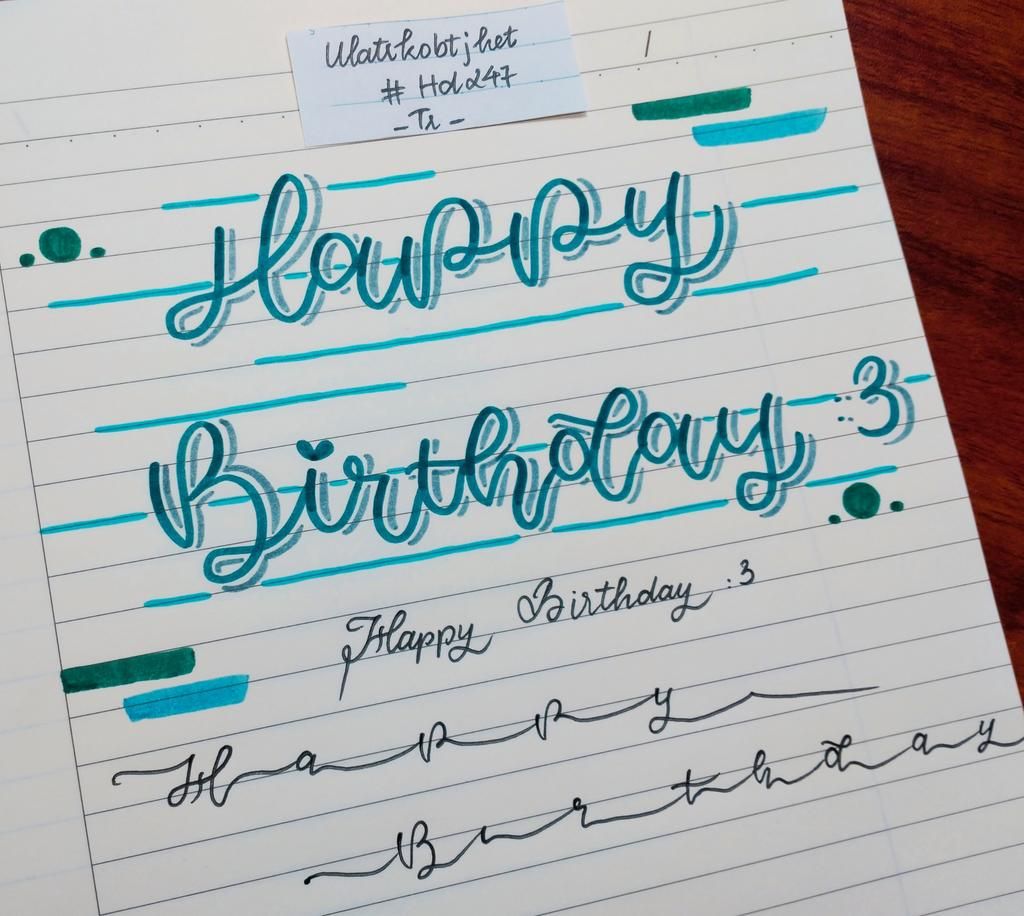 Ulatikobtjhet
# Hdd247
- Tr -
Happy
Birthday :3
Happy Birthday :3
Happy
Birthday